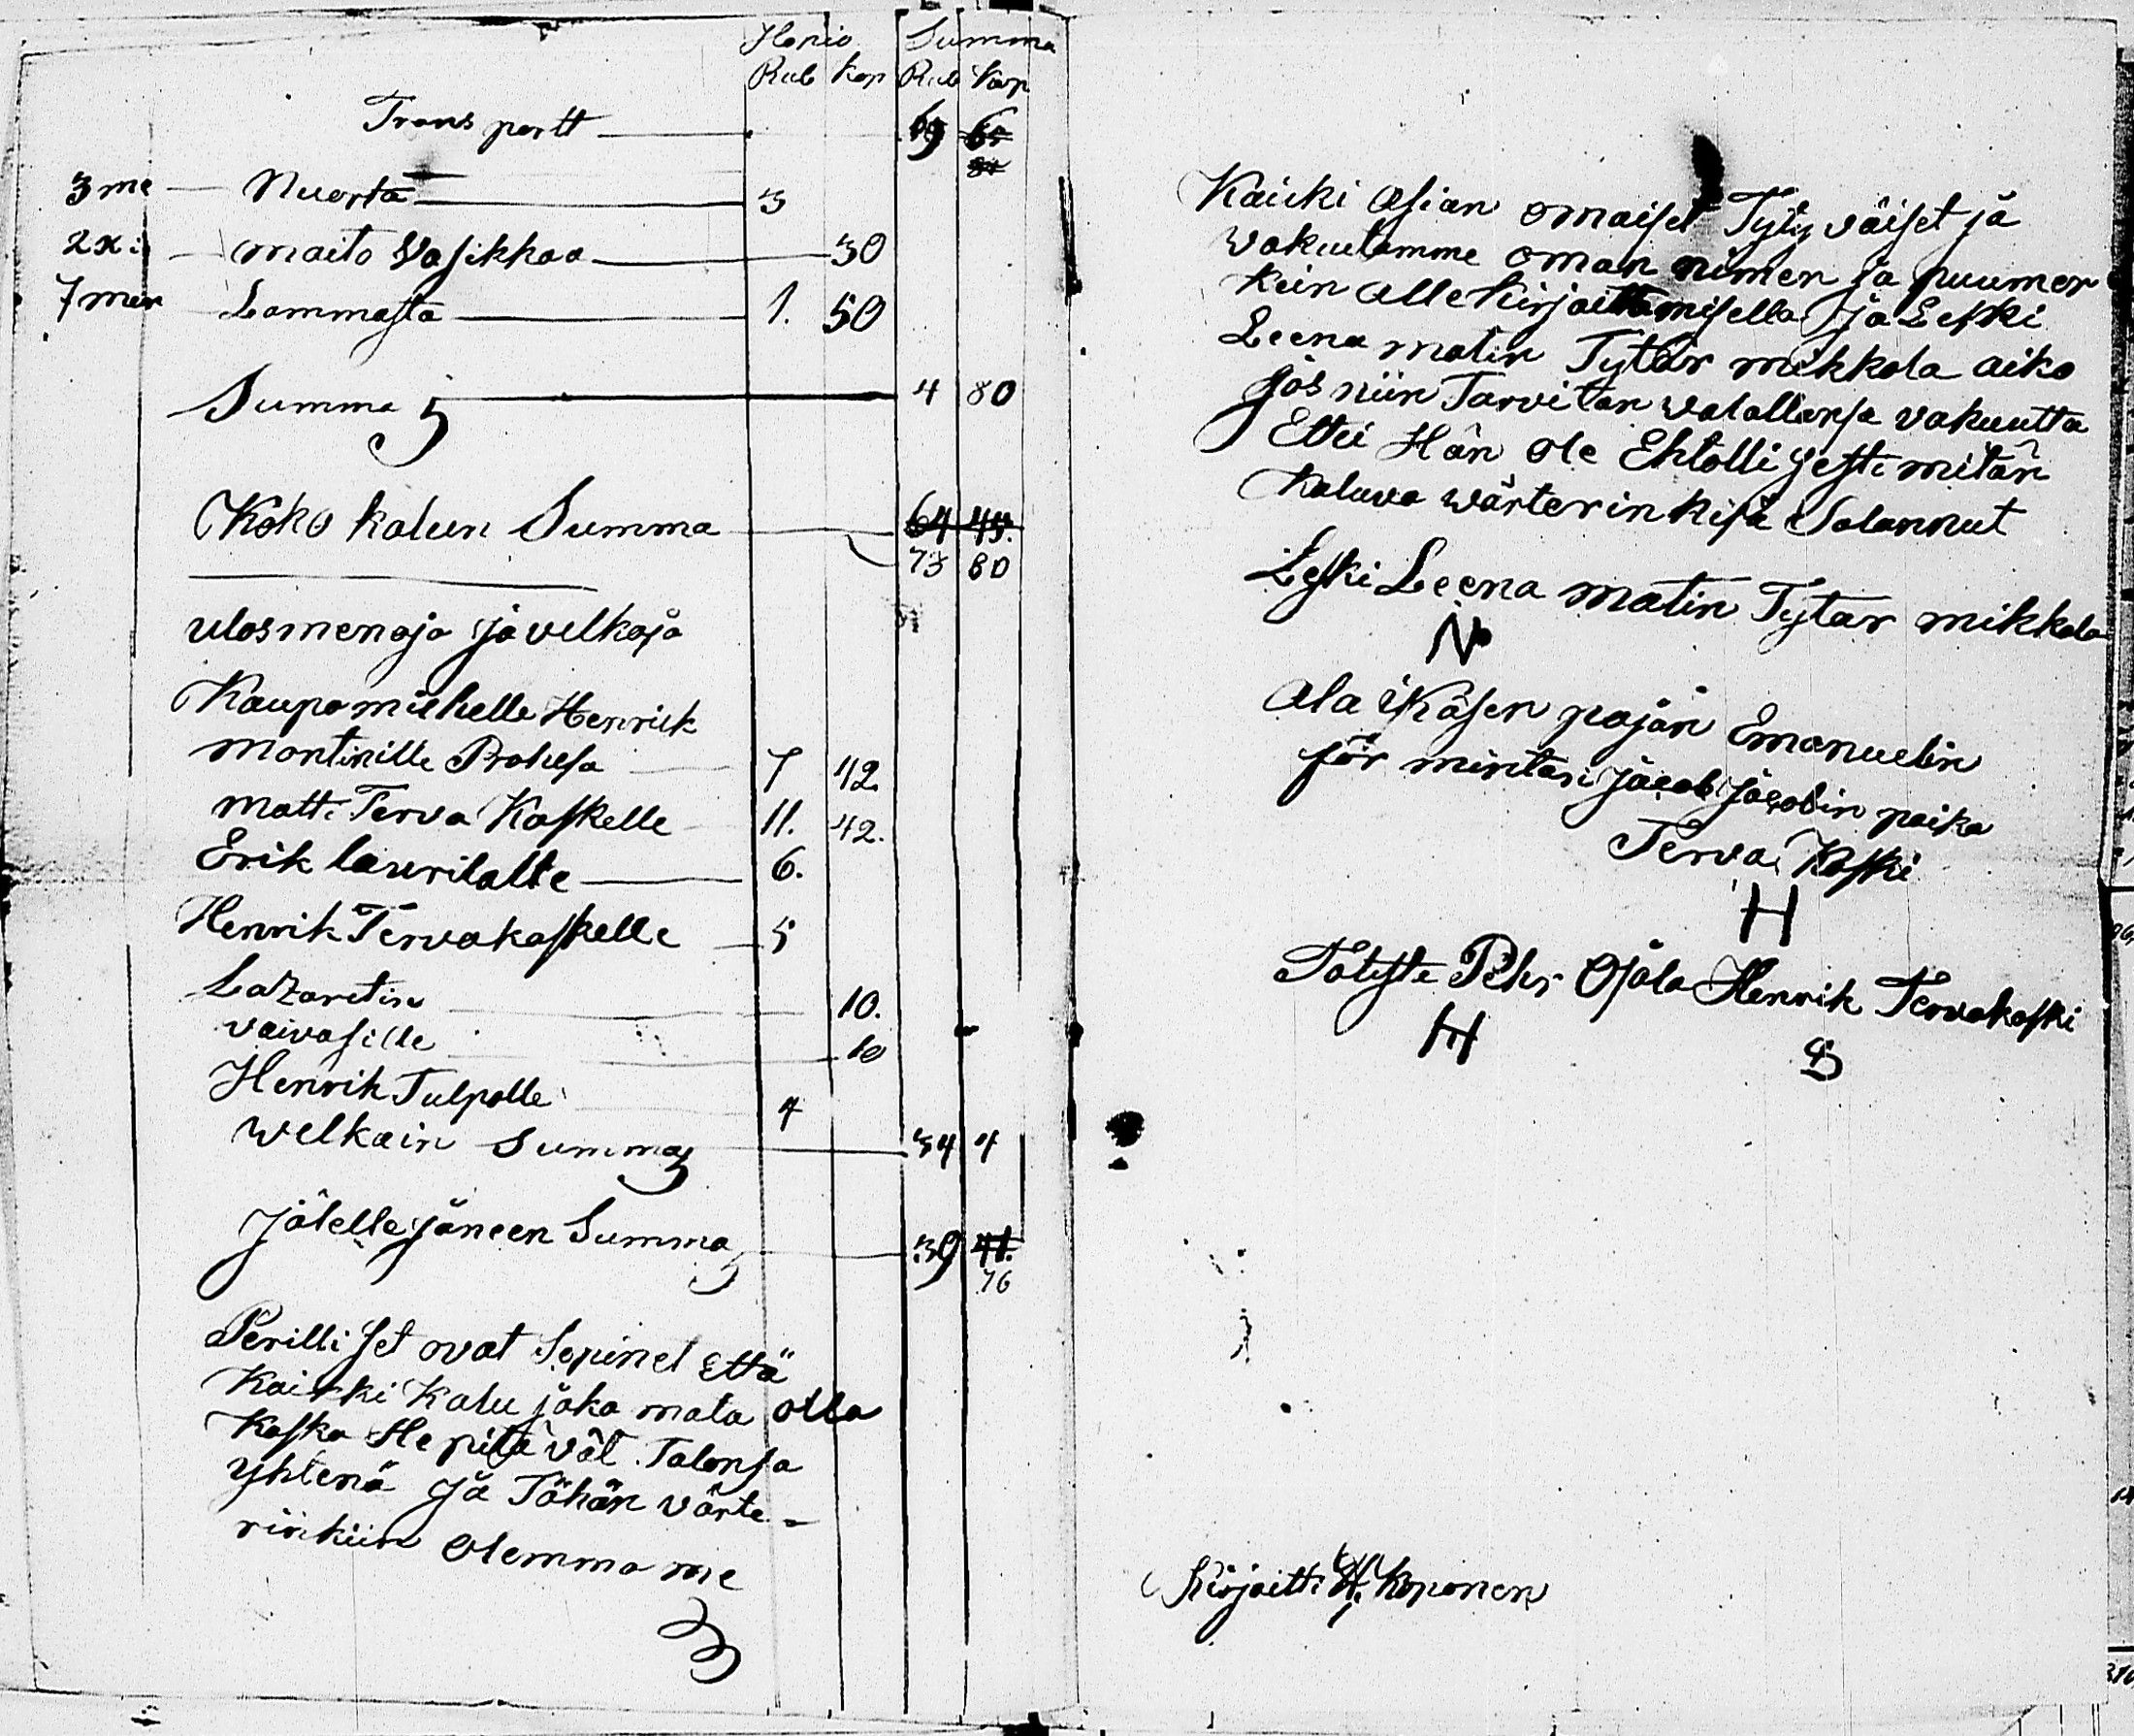 Hinio Summa
Rub Kop Rub Kop
Trans portt 69
3 me Nuorta 3
2 xi maito Vasikkaa 30
7 men Lammasta 1. 50
Summa 4 80
Koko kalun Summa 64 45.
73 80
ulosmenoja ja velkoja
Kaupamiehelle Henrick
Montinille Prahesa 7 42
Matti Terva Koskelle 11. 42.
Erik laurilalle 6.
Henrik Tervakoskelle 5
Lazaretin 10.
vaivasille 10
Henrik Tulpalle 4
welkain Summa 34 4
Jälelle jäneen Summa 39 41.
76
Perilliset ovat Sopinet Että
Kaikki Kalu joka mata olla
Koska He pitävät Talonsa
yhtenä ja Tähän värte-
rinkiin olemma me
Kaicki Asian omaiset Tytyväiset ja
vakutamme oman nimen ja puumer
kein allekirjoittamisella ja Leski
Leena matin Tytär mikkola aiko
jos niin Tarvitan valallansa vakuutta
Ettei Hän ole Ehtollisesti mitän
Kaluva wärterinkisä Salannut
Leski Leena matin Tytar mikkola
N
Ala ikäsen pojan Emanuelin
för mintari Jacob Jacobin poika
Terva Koski
H
Todista Pehr Ojala Henrik Tervakoski
H
Kirjoitti H. Koponen